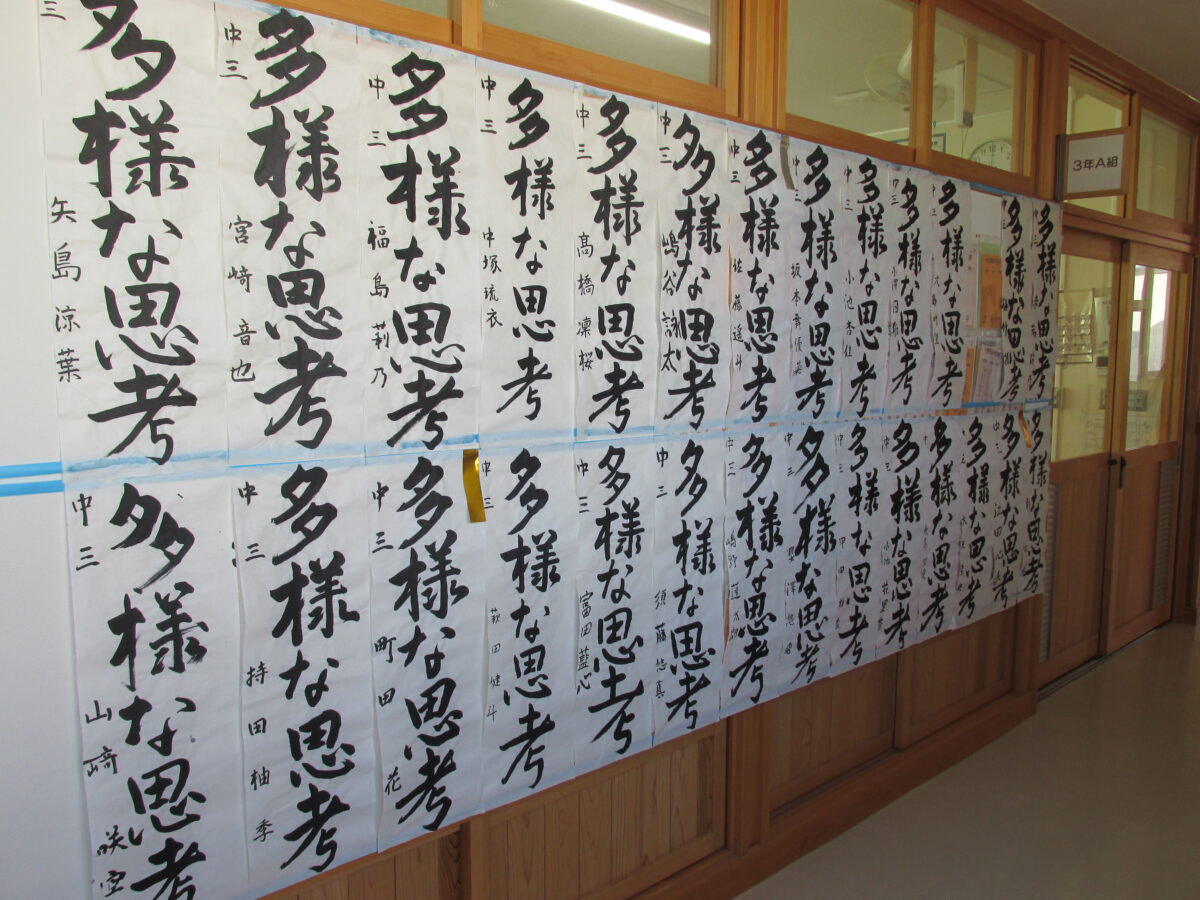 多様な思考
中三
矢島涼葉
多様な思考
中三
宮崎音也
多様な思考
中三
福島莉乃
多様な思考
中三
中塚琉衣
多様な思考
中三
髙橋凛桜
多様な思考
中三
嶋谷詠太
多様な思考
中三
佐藤遥斗
多様な思考
中三
多様な思考
中三
小池杏佳
多様な思考
中三
多様な思考
中三
多様な思考
多様な思考
3年A組
多様な思考
中三
山﨑咲空
多様な思考
中三
持田柚季
多様な思考
中三
町田花
多様な思考
中三
萩田健斗
多様な思考
中三
富田藍心
多様な思考
中三
須藤悠真
多様な思考
中三
多様な思考
中三
多様な思考
中三
多様な思考
中三
多様な思考
多様な思考
多様な思考
多様な思考